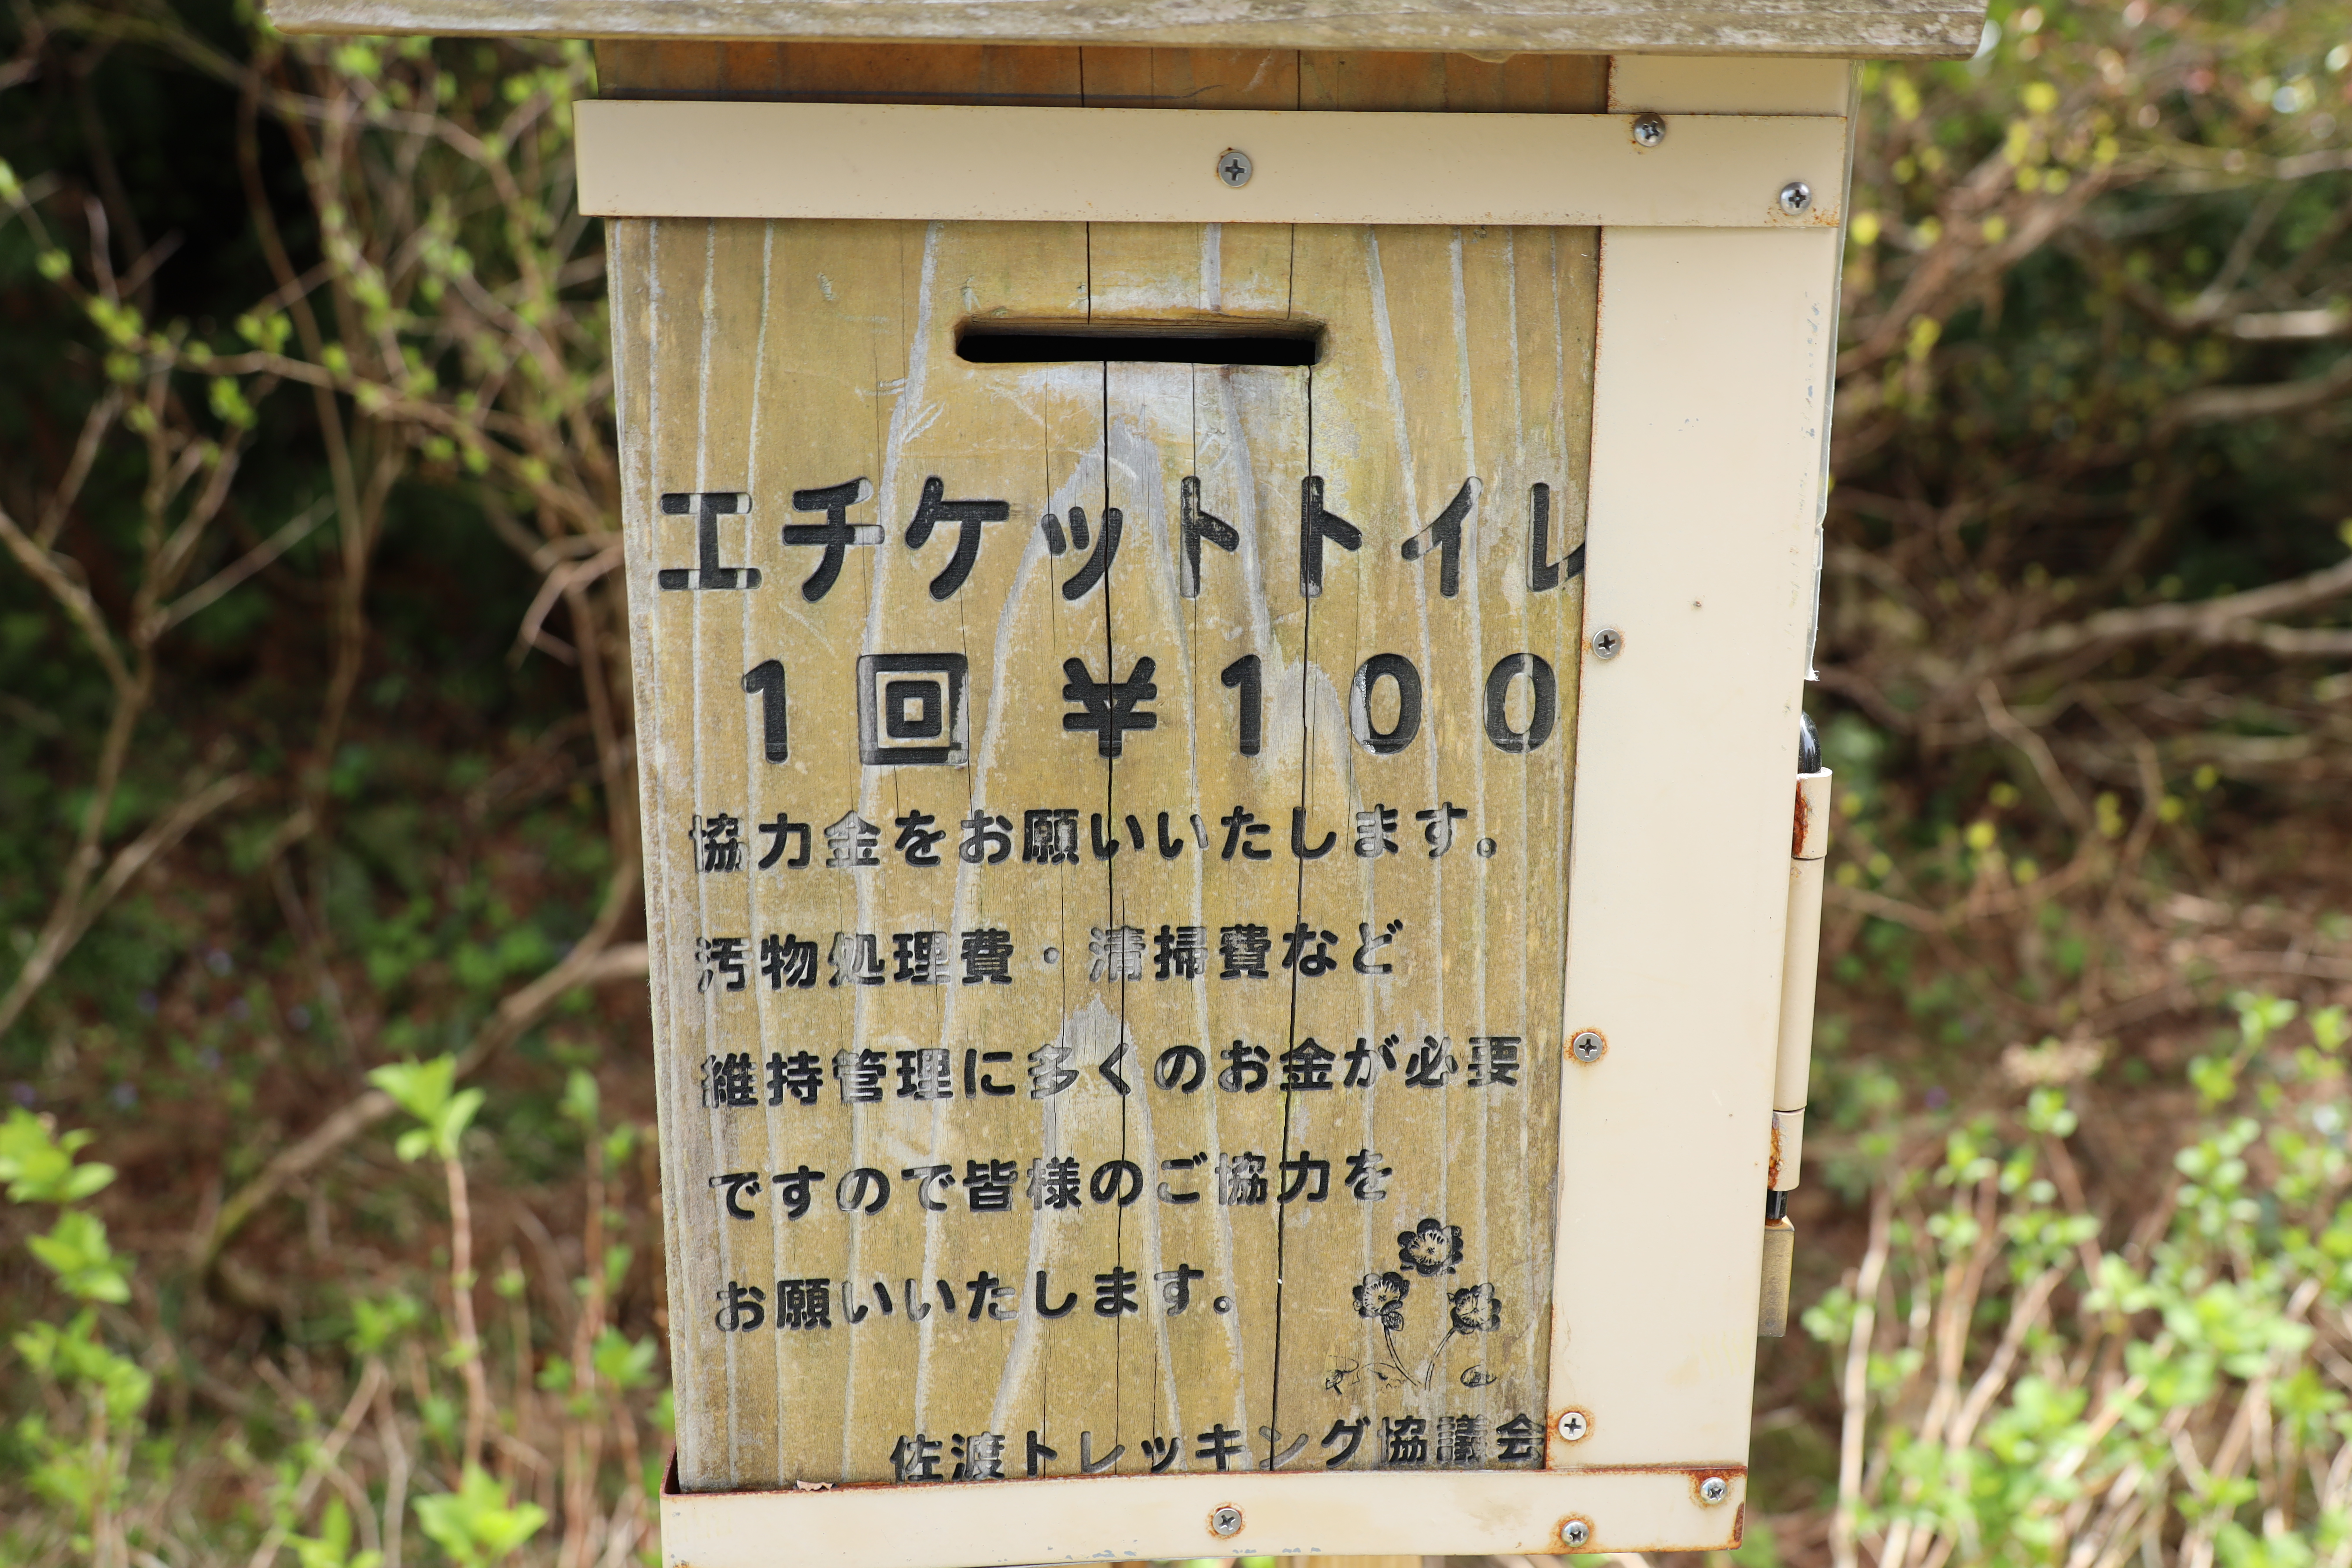 エチケットトイレ
1回 ¥100
協力金をお願いいたします。
汚物処理費・清掃費など
維持管理に多くのお金が必要
ですので皆様のご協力を
お願いいたします。
佐渡トレッキング協議会